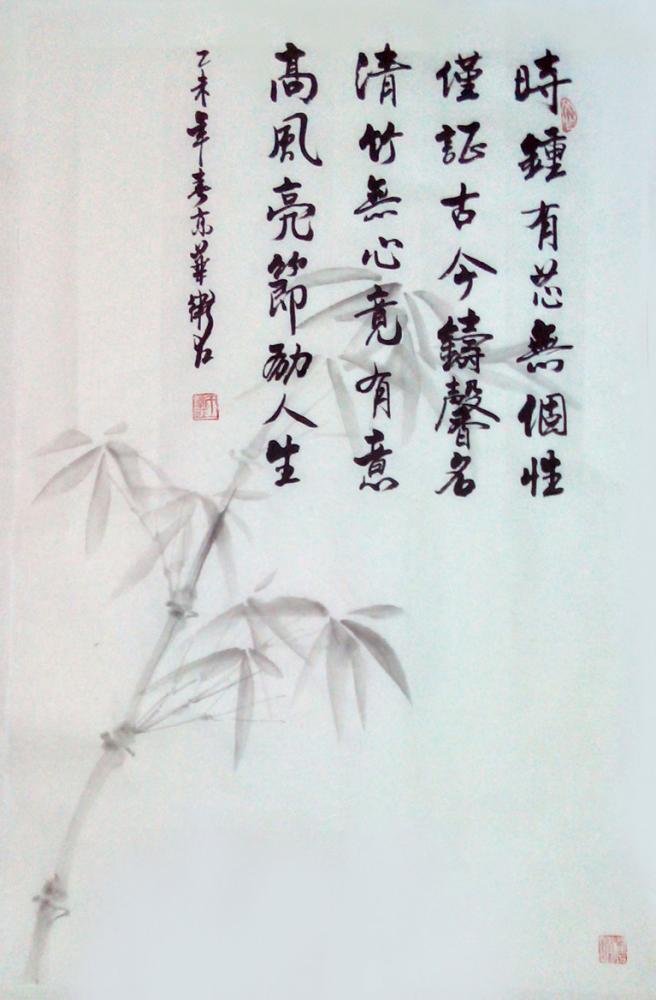 時鍾有芯無個性
僅証古今鑄馨名
清竹無心竟有意
高風亮節勵人生
乙未年春京華